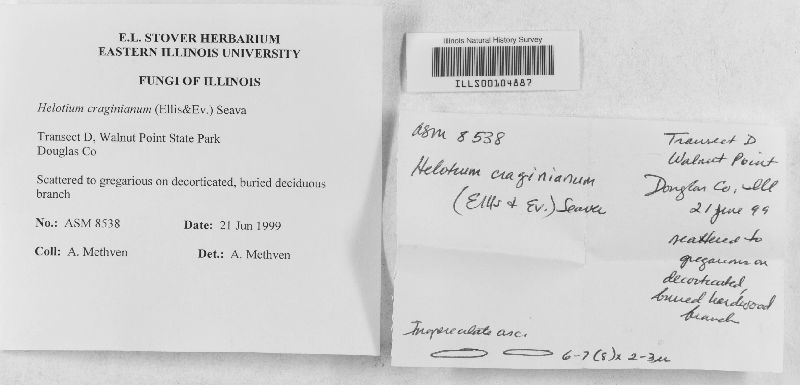 E.L. STOVER HERBARIUM
EASTERN ILLINOIS UNIVERSITY
FUNGI OF ILLINOIS
Helotium craginianum (Ellis&Ev.) Seava
Transect D, Walnut Point State Park
Douglas Co
Scattered to gregarious on decorticated, buried deciduous
branch
No.: ASM 8538 Date: 21 Jun 1999
Coll: A. Methven Det.: A. Methven
Illinois Natural History Survey
ILLS00104887
asm 8538
Helotium craginianum
(Ellis & Ev.) Seaver
Transect D
Walnut Point
Douglas Co, Ill
21 june 99
scattered to
gregarious on
decorticated,
buried hardwood
branch
Inoperculate asc.
6-7(8) x 2-3u